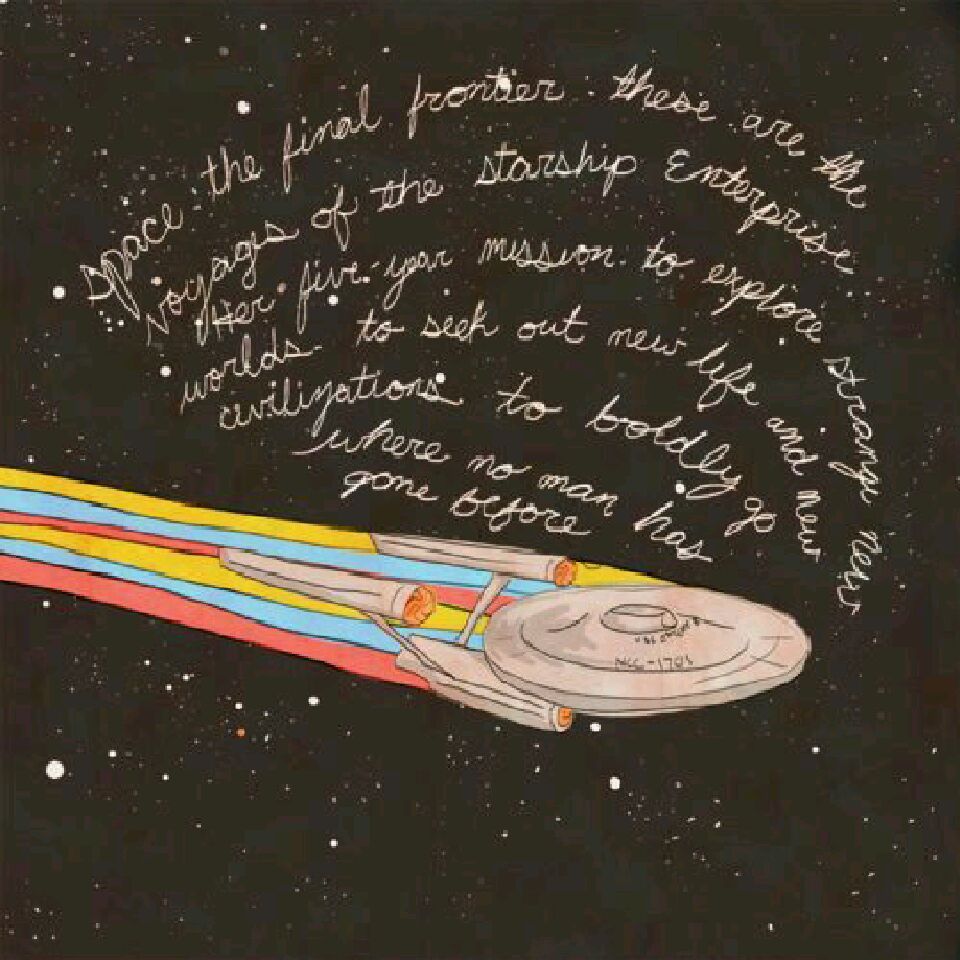 Space the final frontier these are the
voyages of the starship Enterprise
Her five-year mission to explore strange new
worlds to seek out new life and new
civilizations to boldly go
where no man has
gone before
NCC-1701